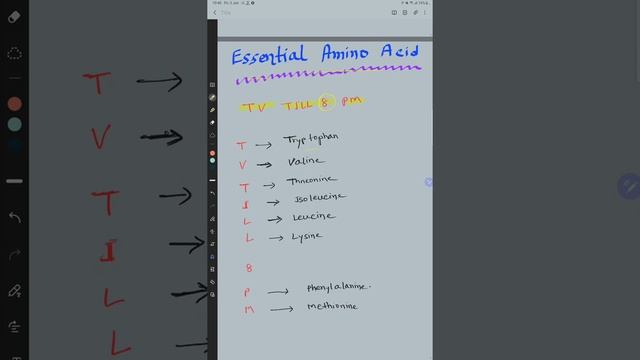 Essential Amino Acid
TV TILL 8 PM
T → Tryptophan
V → Valine
T → Threonine
I → Isoleucine
L → Leucine
L → Lysine
8
P → Phenylalanine.
M → Methionine
T →
V →
T →
I →
L →
L →